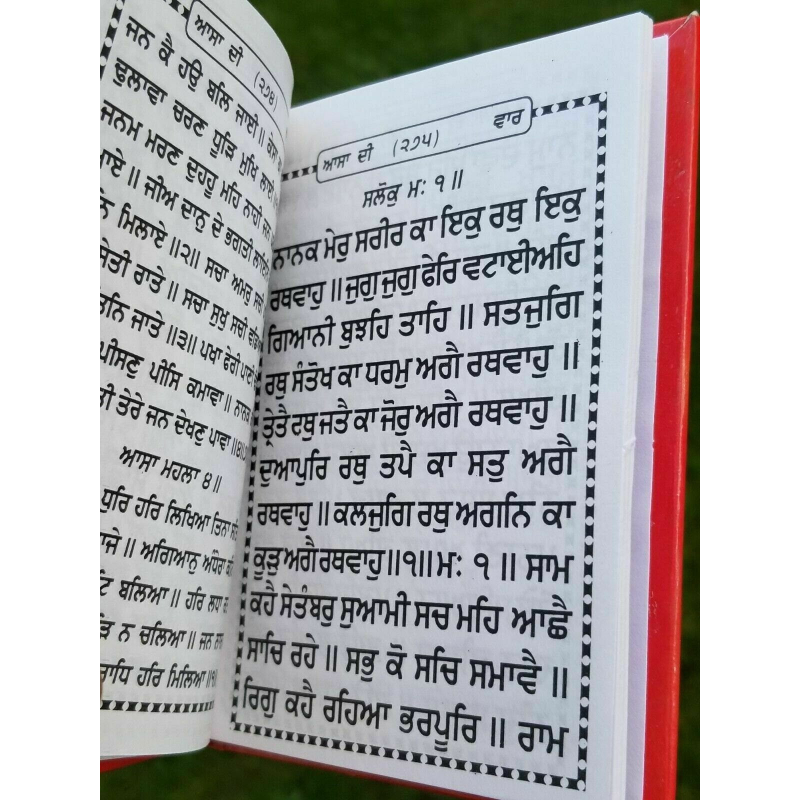 ਆਸਾ ਦੀ (੨੭੪)
ਜਨ ਕੈ ਹਉ ਬਲਿ ਜਾਈ॥
ਢੁਲਾਵਾ ਚਰਣ ਧੂੜਿ ਮੁਖਿ ਲਾਈ
ਜਨਮ ਮਰਣ ਦੁਹਹੂ ਮਹਿ ਨਾਹੀ ਜਨ
ਆਏ॥ ਜੀਅ ਦਾਨੁ ਦੇ ਭਗਤੀ ਲਾਇਨਿ
ਨਿ ਮਿਲਾਏ॥੨॥ ਸਚਾ ਅਮਰੁ ਸਚੀ
ਸੇਤੀ ਰਾਤੇ॥ ਸਚਾ ਸੁਖੁ ਸਚੀ
ਨਿ ਜਾਤੇ॥੩॥ ਪਖਾ ਫੇਰੀ ਪਾਣੀ
ਪੀਸਣੁ ਪੀਸਿ ਕਮਾਵਾ॥ ਨਾਨਕ
ਤੇਰੇ ਜਨ ਦੇਖਣੁ ਪਾਵਾ
ਆਸਾ ਮਹਲਾ ੪॥
ਧੁਰਿ ਹਰਿ ਲਿਖਿਆ ਤਿਨਾ
ਅਗਿਆਨੁ ਅੰਧੇਰਾ
ਬਲਿਆ॥ ਹਰਿ ਲਧਾ
ਨ ਚਲਿਆ॥ ਜਨ
ਰਾਧਿ ਹਰਿ ਮਿਲਿਆ॥੧॥
ਆਸਾ ਦੀ (੨੭੫) ਵਾਰ
ਸਲੋਕੁ ਮਃ ੧॥
ਨਾਨਕ ਮੇਰੁ ਸਰੀਰ ਕਾ ਇਕੁ ਰਥੁ ਇਕੁ
ਰਥਵਾਹੁ॥ ਜੁਗੁ ਜੁਗੁ ਫੇਰਿ ਵਟਾਈਅਹਿ
ਗਿਆਨੀ ਬੁਝਹਿ ਤਾਹਿ॥ ਸਤਜੁਗਿ
ਰਥੁ ਸੰਤੋਖ ਕਾ ਧਰਮੁ ਅਗੈ ਰਥਵਾਹੁ॥
ਤ੍ਰੇਤੈ ਰਥੁ ਜਤੈ ਕਾ ਜੋਰੁ ਅਗੈ ਰਥਵਾਹੁ॥
ਦੁਆਪੁਰਿ ਰਥੁ ਤਪੈ ਕਾ ਸਤੁ ਅਗੈ
ਰਥਵਾਹੁ॥ ਕਲਜੁਗਿ ਰਥੁ ਅਗਨਿ ਕਾ
ਕੂੜੁ ਅਗੈ ਰਥਵਾਹੁ॥੧॥ ਮਃ ੧॥ ਸਾਮ
ਕਹੈ ਸੇਤੰਬਰੁ ਸੁਆਮੀ ਸਚ ਮਹਿ ਆਛੈ
ਸਾਚਿ ਰਹੇ॥ ਸਭੁ ਕੋ ਸਚਿ ਸਮਾਵੈ॥
ਰਿਗੁ ਕਹੈ ਰਹਿਆ ਭਰਪੂਰਿ॥ ਰਾਮ